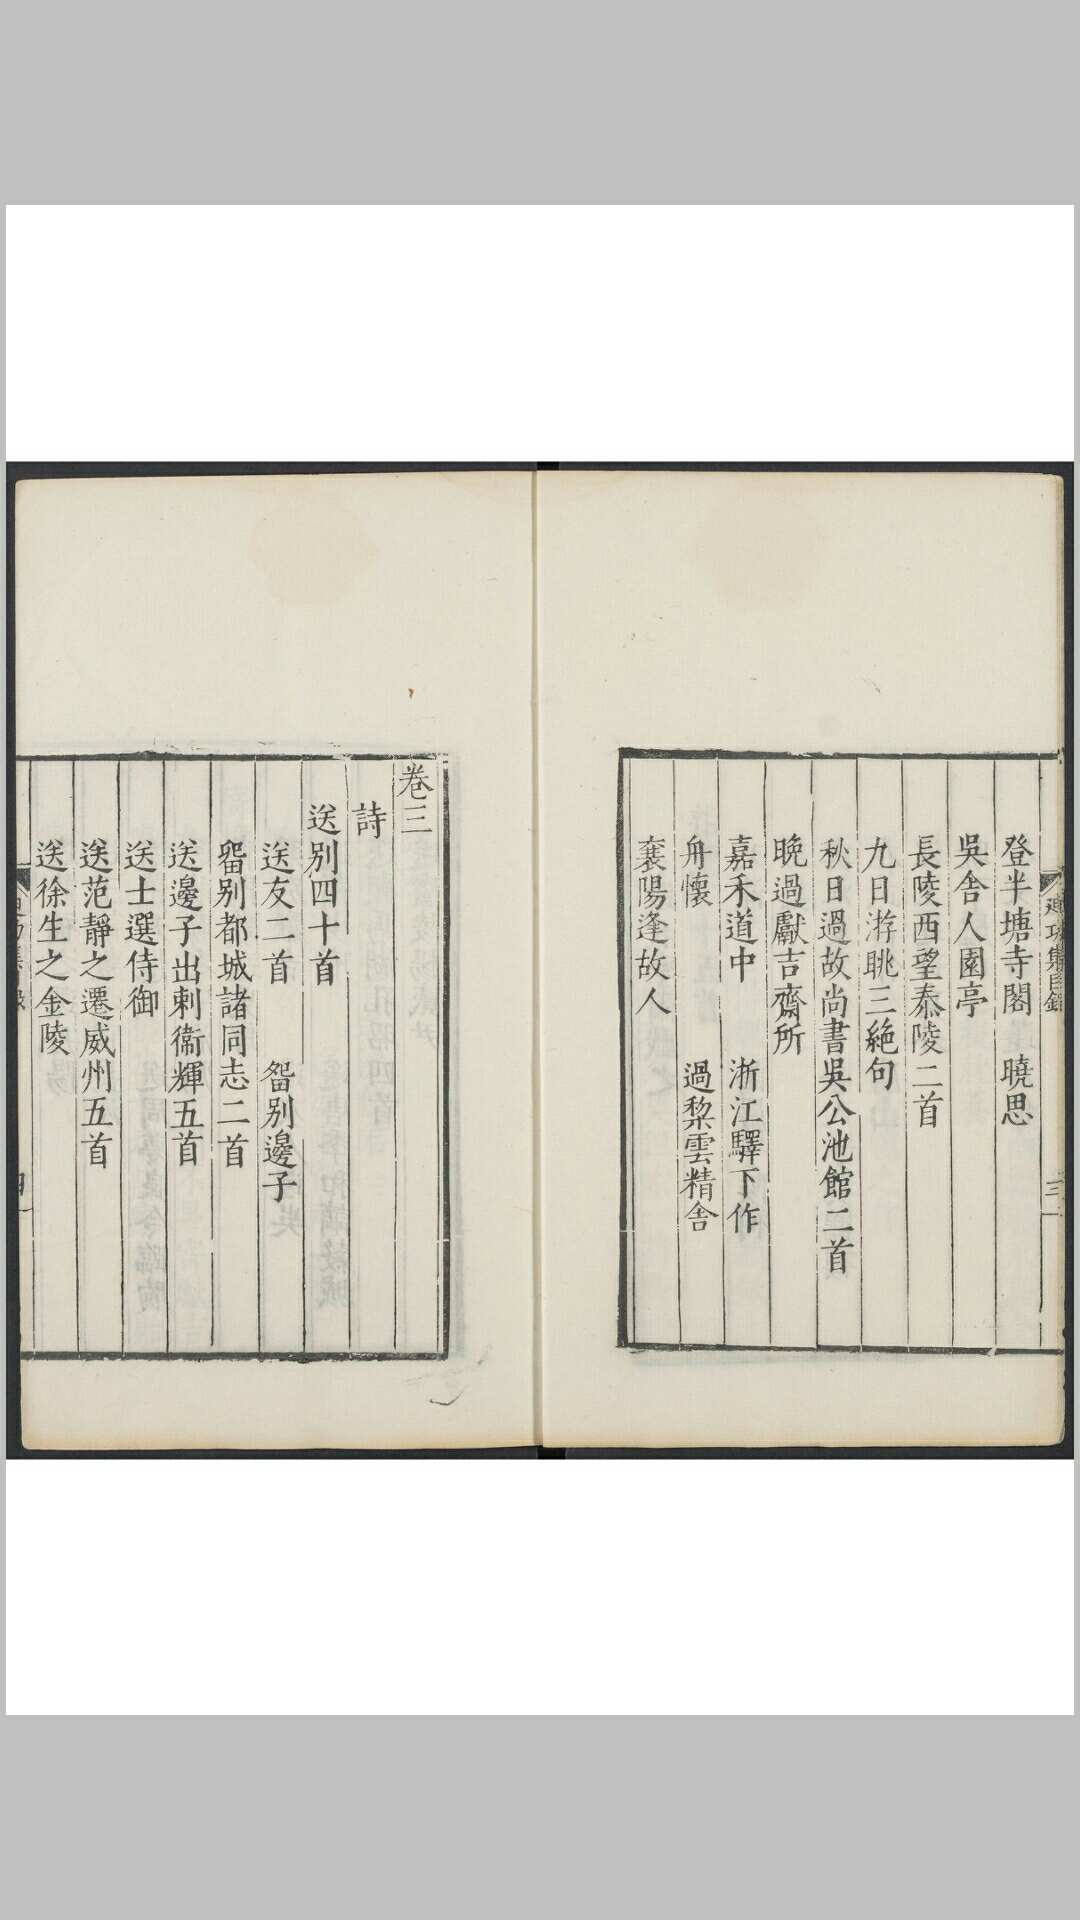 迪功集目錄 三
登半塘寺閣 曉思
吳舍人園亭
長陵西望泰陵二首
九日游眺三絶句
秋日過故尚書吳公池館二首
晩過獻吉齋所
嘉禾道中 浙江驛下作
舟懷 過棃雲精舍
襄陽逢故人
卷三
詩
送别四十首
送友二首 畱别邊子
畱别都城諸同志二首
送邊子出刺衞輝五首
送士選侍御
送范靜之遷威州五首
送徐生之金陵